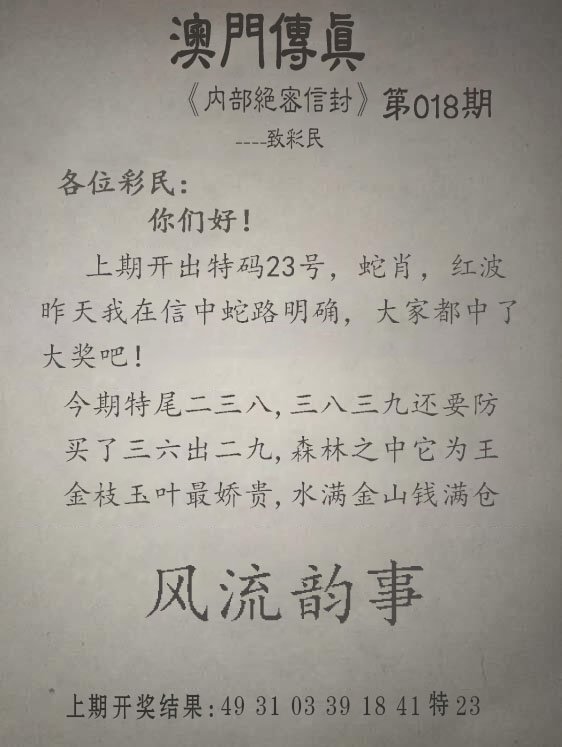 澳門傳真
《内部絕密信封》第018期
----致彩民
各位彩民：
你们好！
上期开出特码23号，蛇肖，红波
昨天我在信中蛇路明确，大家都中了
大奖吧！
今期特尾二三八,三八三九还要防
买了三六出二九,森林之中它为王
金枝玉叶最娇贵,水满金山钱满仓
风流韵事
上期开奖结果：49 31 03 39 18 41 特 23